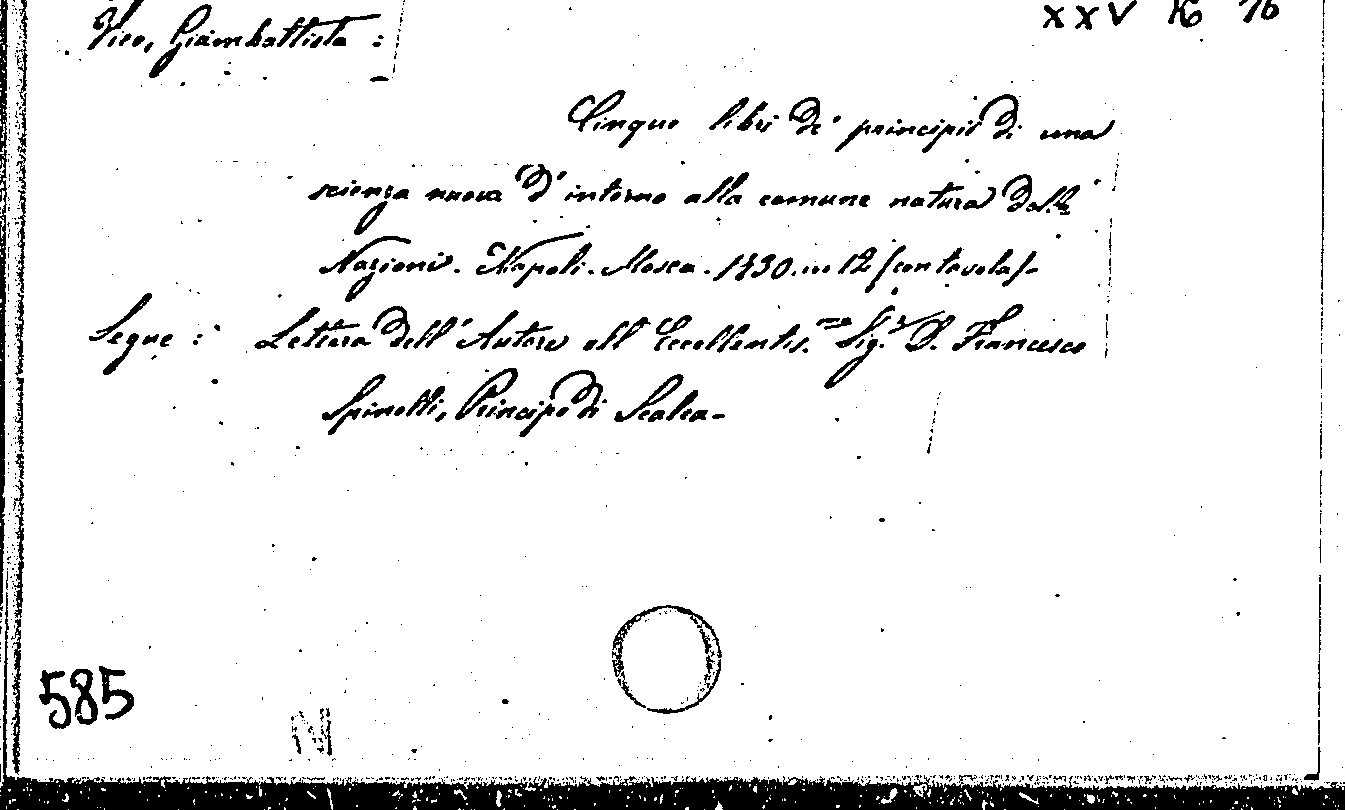 Vico, Giambattista : XXV K 76
Cinque libri de' principii di una
scienza nuova d'intorno alla comune natura delle
Nazioni. Napoli. Mosca. 1730. in 12 (con tavola).
Segue : Lettera dell' Autore all' Eccellentis.mo Sig.r D. Francesco
Spinelli, Principe di Scalea.
585
N